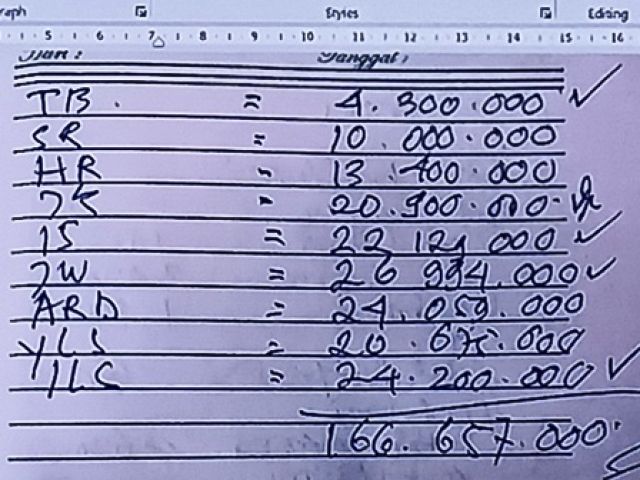 raph Styles Editing
5 6 7 8 9 10 11 12 13 14 15 16
Hari : Tanggal :
TB. = 4.300.000 ✓
SR = 10.000.000
HR = 13.400.000
JS = 20.900.000
IS = 22 129 000 ✓
JW = 26 994.000 ✓
ARD = 24.059.000
YLS = 20.675.000
= 24.200.000 ✓
166.657.000